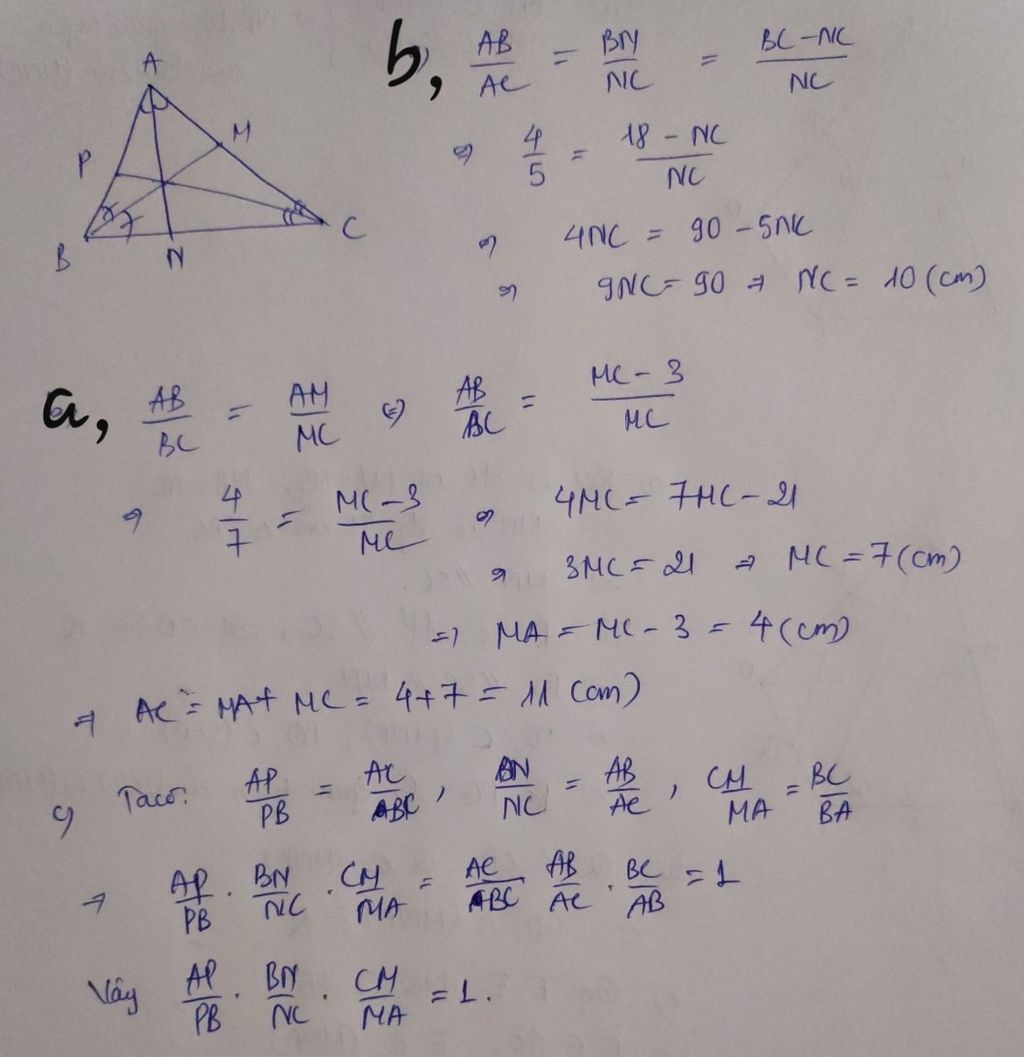 A
M
P
B
N
C
b, AB/AC = BN/NC = BC-NC/NC
⇒ 4/5 = 18 - NC/NC
⇒ 4NC = 90 - 5NC
⇒ 9NC = 90 ⇒ NC = 10 (cm)
a, AB/BC = AM/MC ⇔ AB/BC = MC - 3/MC
⇒ 4/7 = MC - 3/MC ⇒ 4MC = 7MC - 21
⇒ 3MC = 21 ⇒ MC = 7 (cm)
⇒ MA = MC - 3 = 4 (cm)
⇒ AC = MA + MC = 4 + 7 = 11 (cm)
c) Ta có: AP/PB = AC/BC, BN/NC = AB/AC, CM/MA = BC/BA
⇒ AP/PB . BN/NC . CM/MA = AC/BC . AB/AC . BC/AB = 1
Vậy AP/PB . BN/NC . CM/MA = 1.